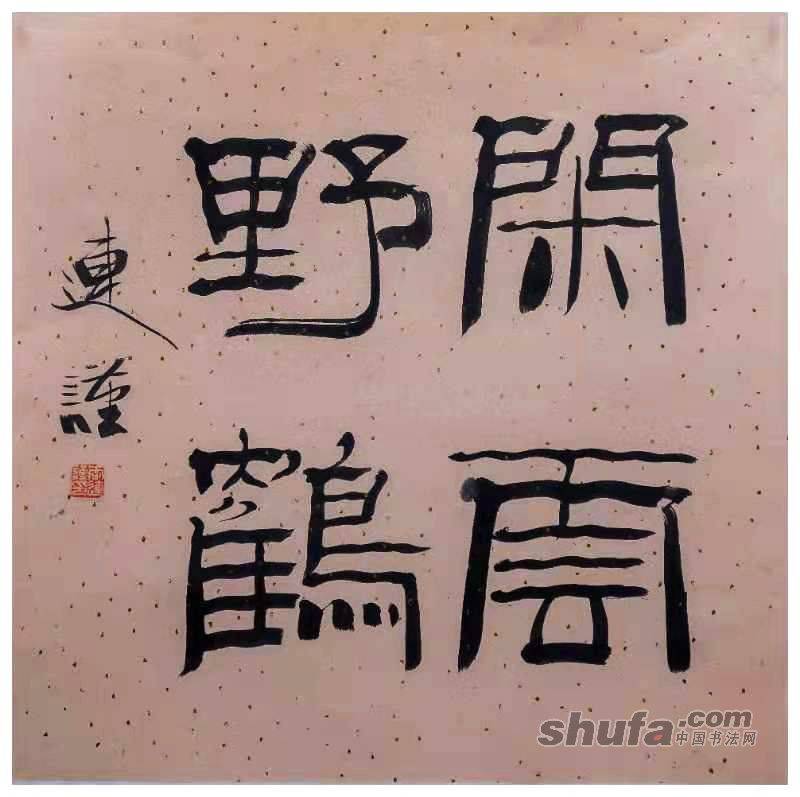 閑雲
野鶴
連謹
shufa.com
中国书法网